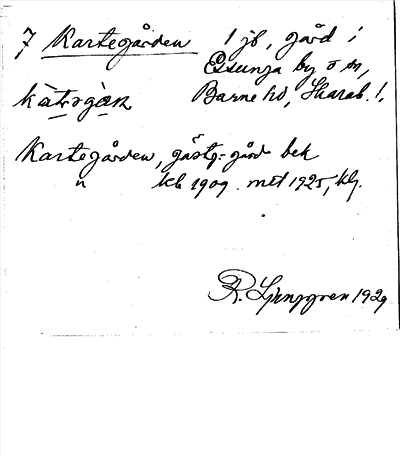 7 Kartegården 1 jb, gård i
Essunga by o sn,
kàtogàn Barne hd, Skarab. l.
Kartegården, gästg.-gård bek
" kb 1909 mtl 1925, klg.
R. Ljunggren 1929